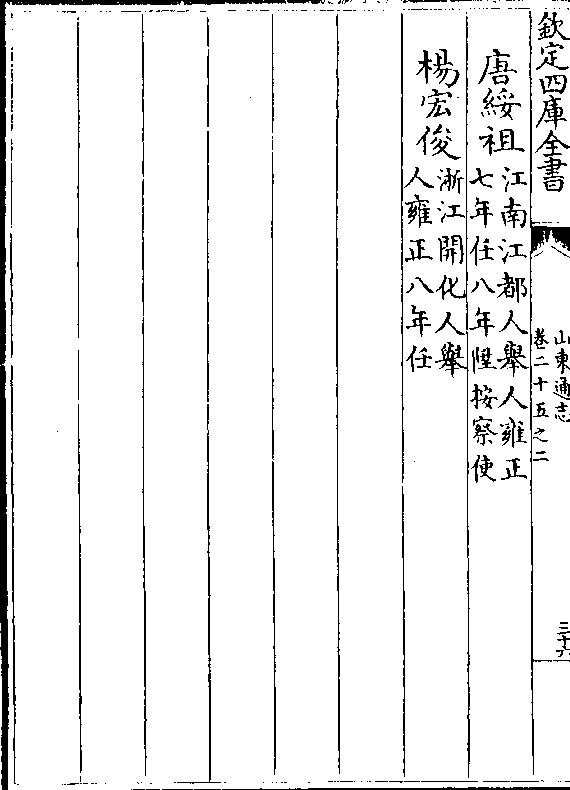 欽定四庫全書
山東通志
卷二十五之二
三十六
唐綏祖
江南江都人舉人雍正
七年任八年陞按察使
楊宏俊
浙江開化人舉
人雍正八年任